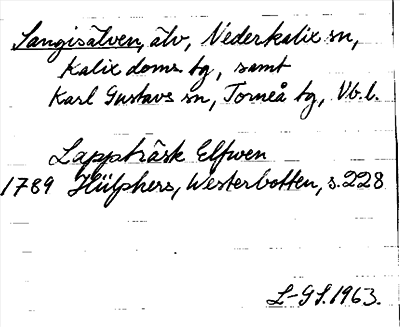 Sangisälven, älv, Nederkalix sn,
Kalix doms. tg, samt
Karl Gustavs sn, Torneå tg, Vb. l.
Lappträsk Elfwen
1789 Hülphers, Westerbotten, s. 228
L-GS. 1963.